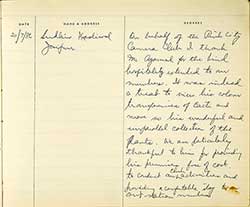 DATE
NAME & ADDRESS
REMARKS
Jaipur
On behalf of the Pink City
Camera Club I thank
Mr Agarwal for the kind
hospitality extended to our
members. It was indeed
a treat to view his colour
transparencies of and
more so his wonderful and
collection of the
plants. We are particularly
thankful to him for providing
his premises free of cost
to conduct our Club activities and
providing comfortable stay to
out station members